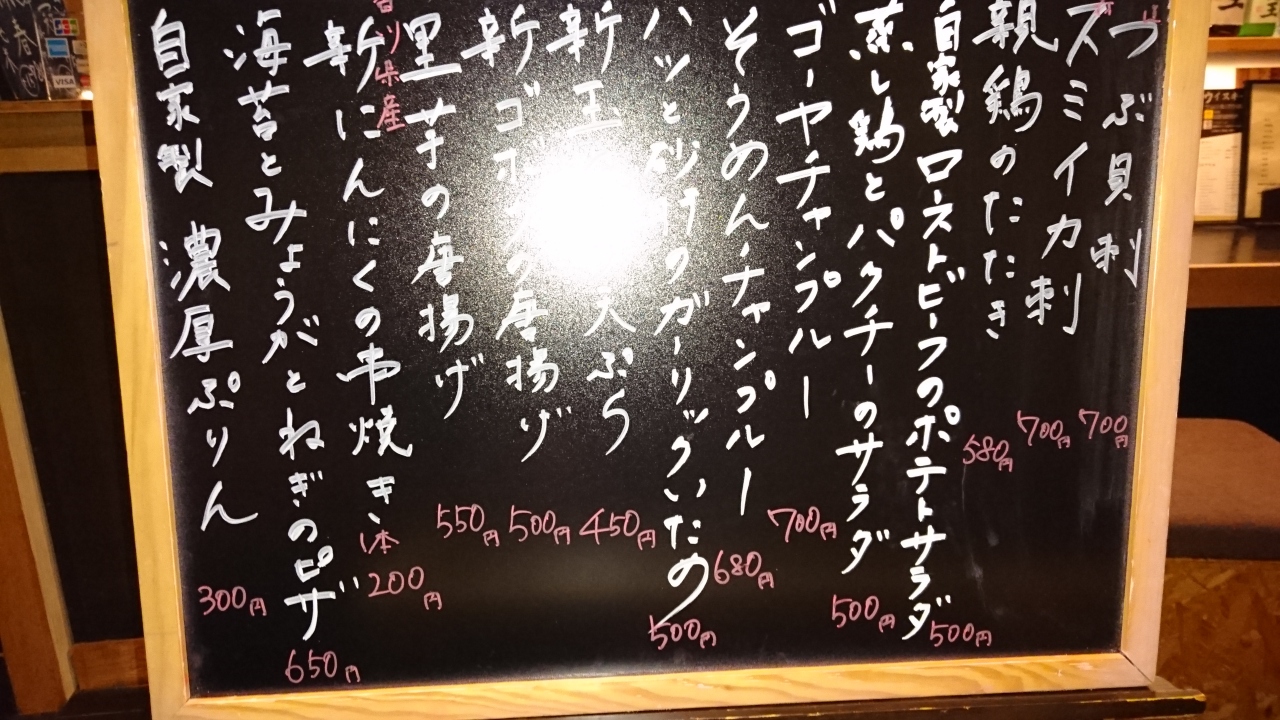 つぶ貝刺 700円
スミイカ刺 700円
親鶏のたたき 580円
自家製ローストビーフのポテトサラダ 500円
蒸し鶏とパクチーのサラダ 500円
ゴーヤチャンプルー 700円
そうめんチャンプルー 680円
ハツと砂ギモのガーリックいため 500円
新玉 天ぷら 450円
新ゴボウの唐揚げ 500円
里芋の唐揚げ 550円
香川県産
新にんにくの串焼き 1本 200円
海苔とみょうがとねぎのピザ 650円
自家製 濃厚ぷりん 300円
JCB
VISA